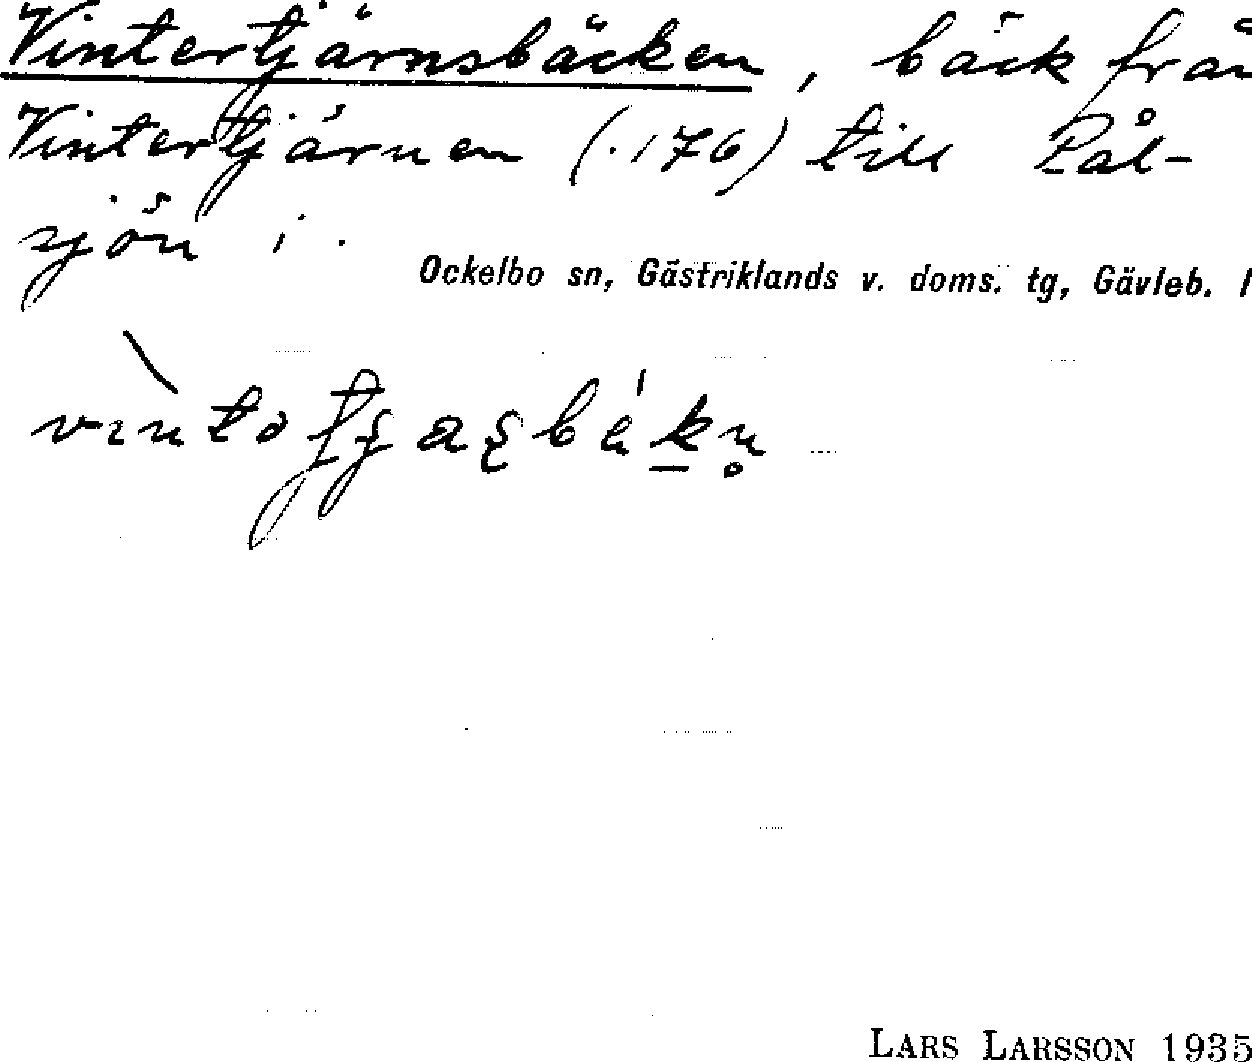 Vintertjärnsbäcken, bäck från
Vintertjärnen (.176) till Pål-
sjön i .
Ockelbo sn, Gästriklands v. doms. tg, Gävleb. l
LARS LARSSON 1935